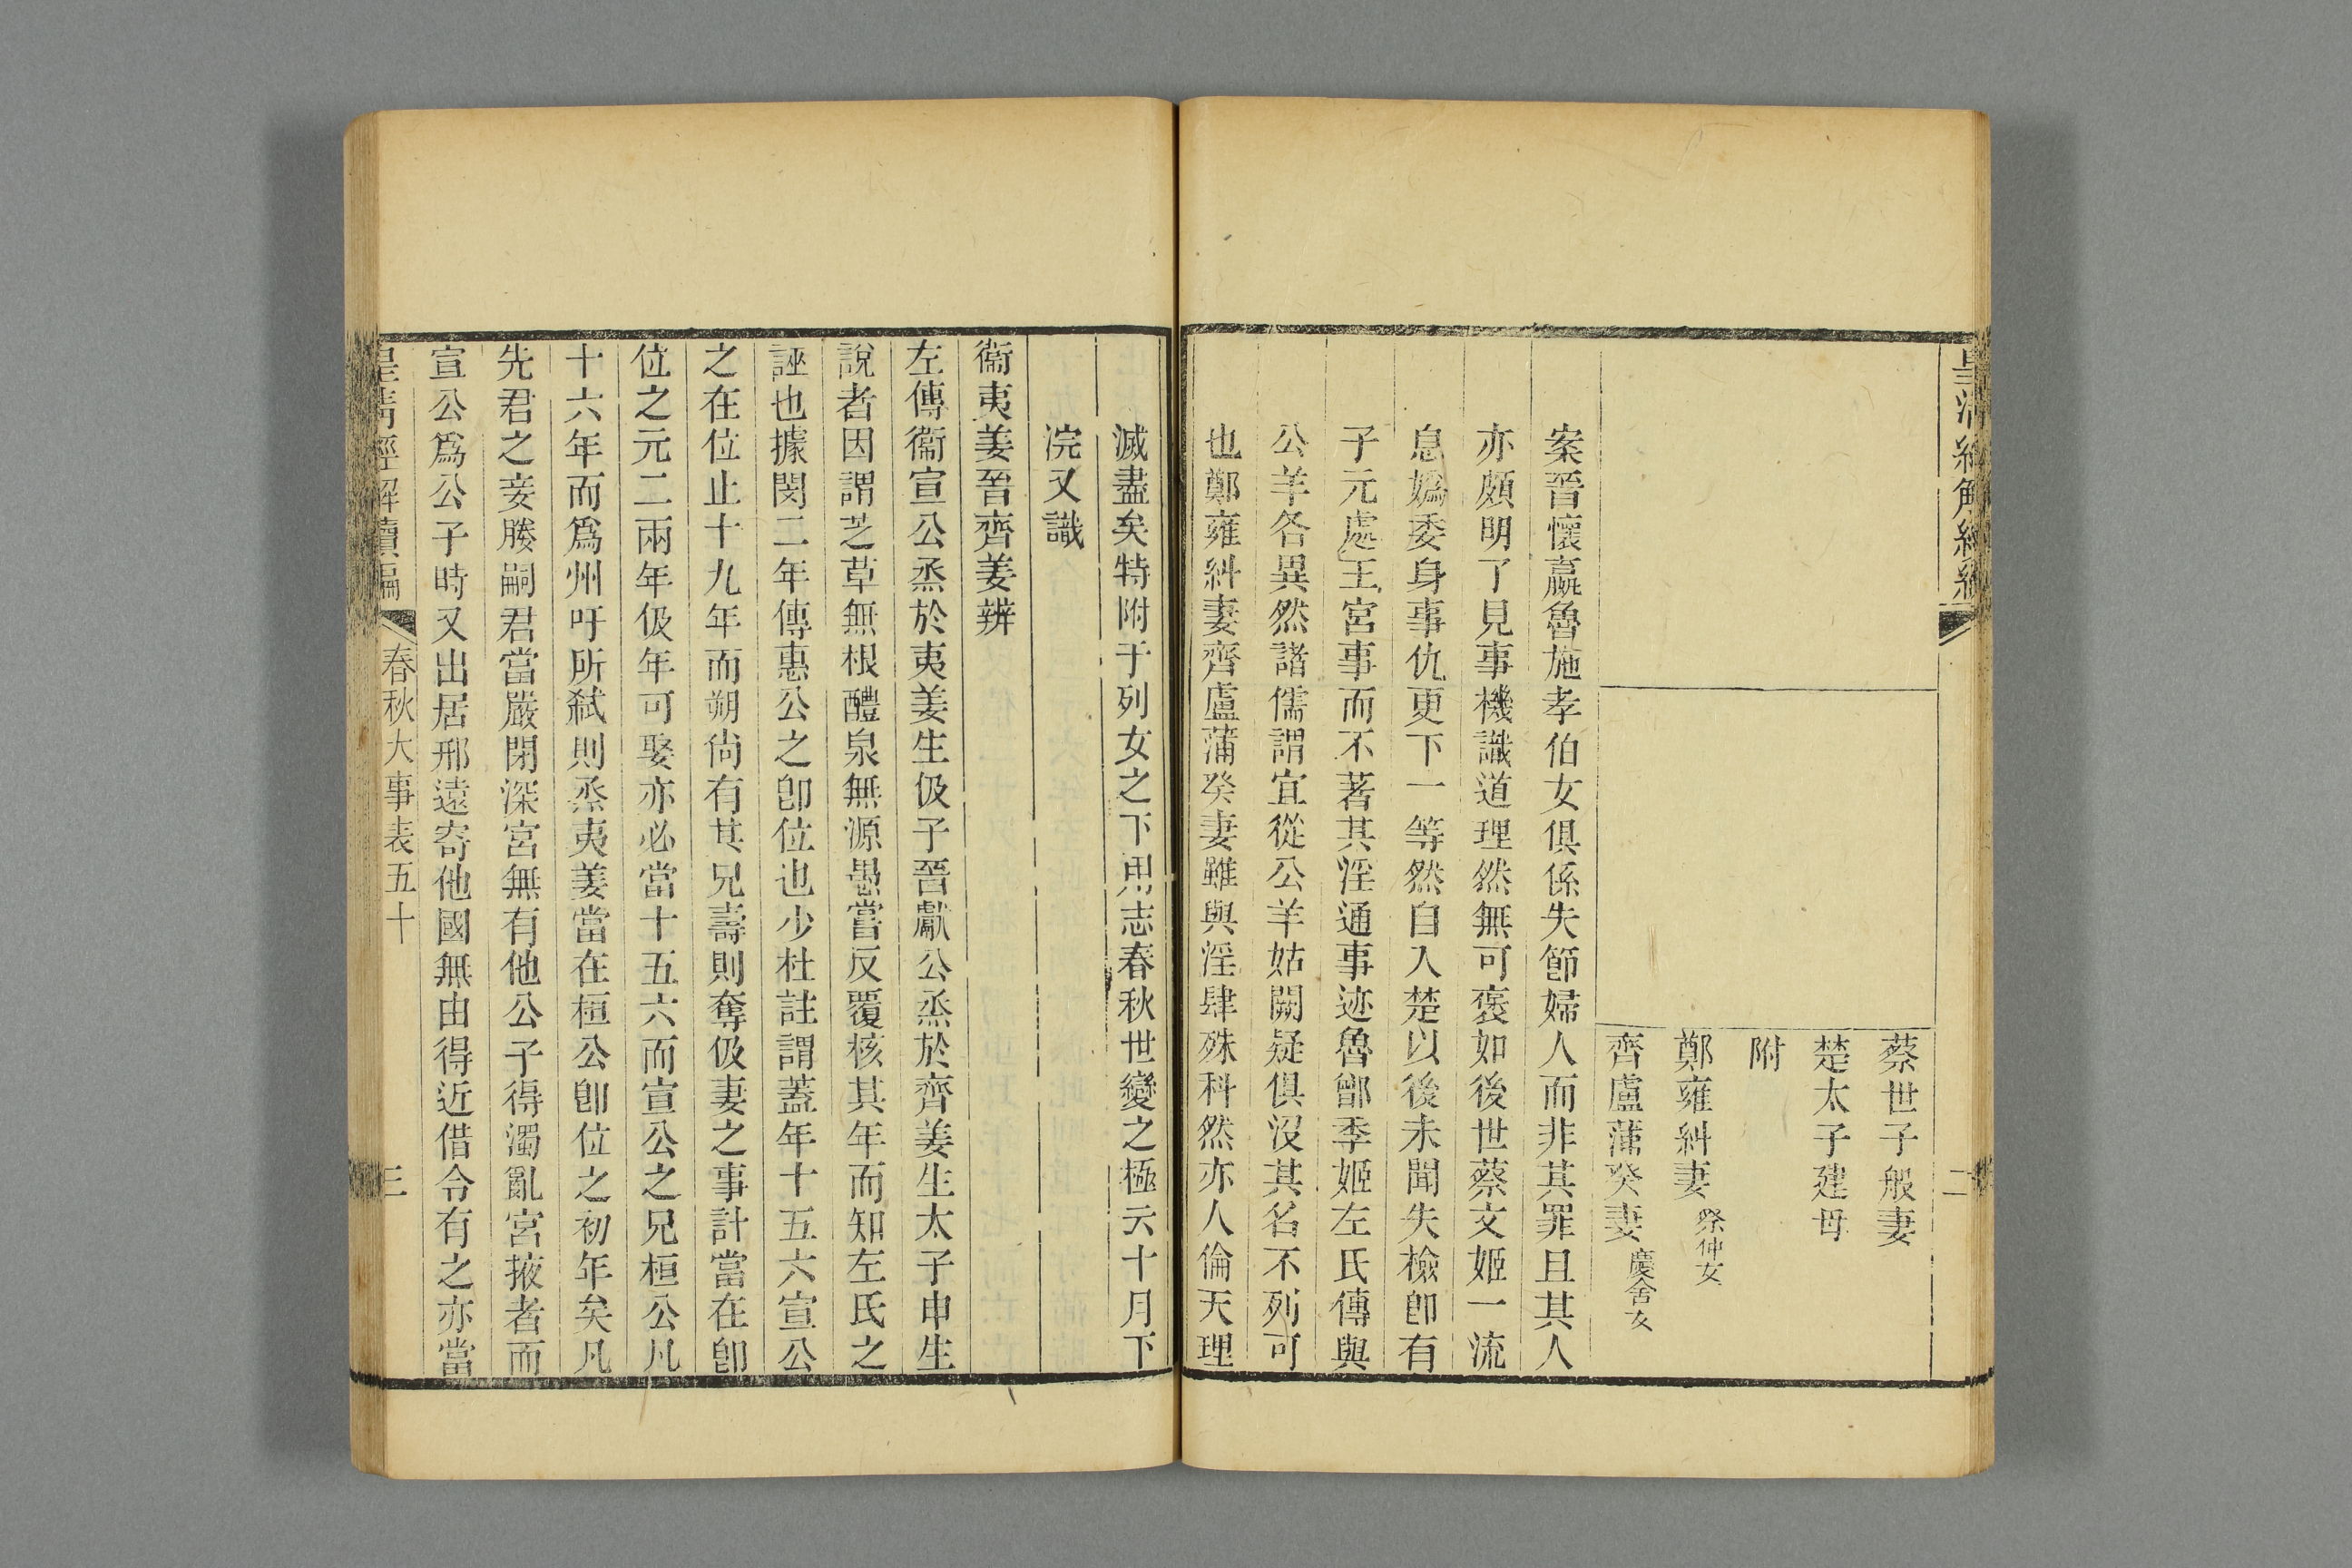 蔡世子般妻
楚太子建母
附
鄭雍糾妻祭仲女
齊盧蒲癸妻慶舍女
案晉懷嬴魯施孝伯女俱係失節婦人而非其罪且其人
亦頗明了見事機識道理然無可褒如後世蔡文姬一流
息嬀委身事仇更下一等然自入楚以後未聞失檢卽有
子元處王宮事而不著其淫通事迹魯鄫季姬左氏傳與
公羊各異然諸儒謂宜從公羊姑闕疑俱沒其名不列可
也鄭雍糾妻齊盧蒲癸妻雖與淫肆殊科然亦人倫天理
滅盡矣特附于列女之下用志春秋世變之極云十月下
浣又識
衞夷姜晉齊姜辨
左傳衞宣公烝於夷姜生伋子晉獻公烝於齊姜生太子申生
說者因謂芝草無根醴泉無源愚嘗反覆核其年而知左氏之
誣也據閔二年傳惠公之卽位也少杜註謂蓋年十五六宣公
之在位止十九年而朔尙有其兄壽則奪伋妻之事計當在卽
位之元二兩年伋年可娶亦必當十五六而宣公之兄桓公凡
十六年而爲州吁所弑則烝夷姜當在桓公卽位之初年矣凡
先君之妾媵嗣君當嚴閉深宮無有他公子得濁亂宮掖者而
宣公爲公子時又出居邢遠寄他國無由得近借令有之亦當
皇清經解續編
春秋大事表五十
三